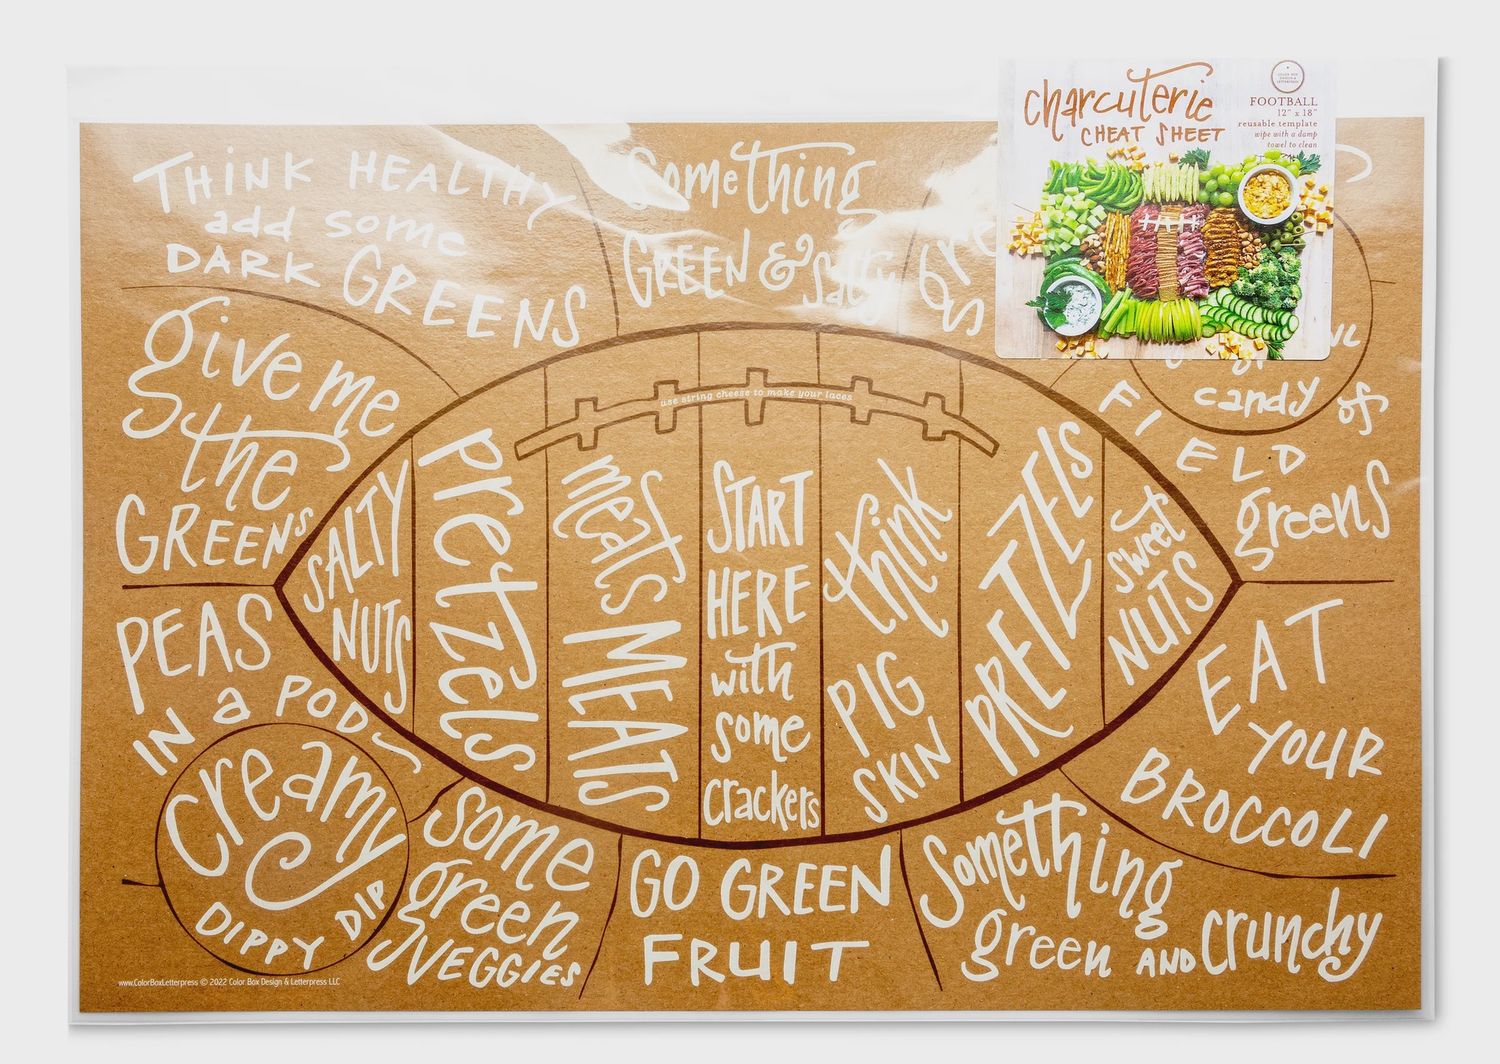 charcuterie
CHEAT SHEET
FOOTBALL
12" x 18"
reusable template
wipe with a damp
towel to clean
THINK HEALTHY
add some
DARK GREENS
Something
GREEN & Salty
give me
the
GREENS
use string cheese to make your laces
candy
FIELD of
greens
SALTY
NUTS
PRETZELS
meats MEATS
START
HERE
with
some
crackers
think
PIG
SKIN
PRETZELS
sweet
NUTS
PEAS
IN a PODS
Creamy
DIPPY DIP
some
green
VEGGIES
GO GREEN
FRUIT
Something
green AND crunchy
EAT
YOUR
BROCCOLI
www.ColorBoxLetterpress © 2022 Color Box Design & Letterpress LLC